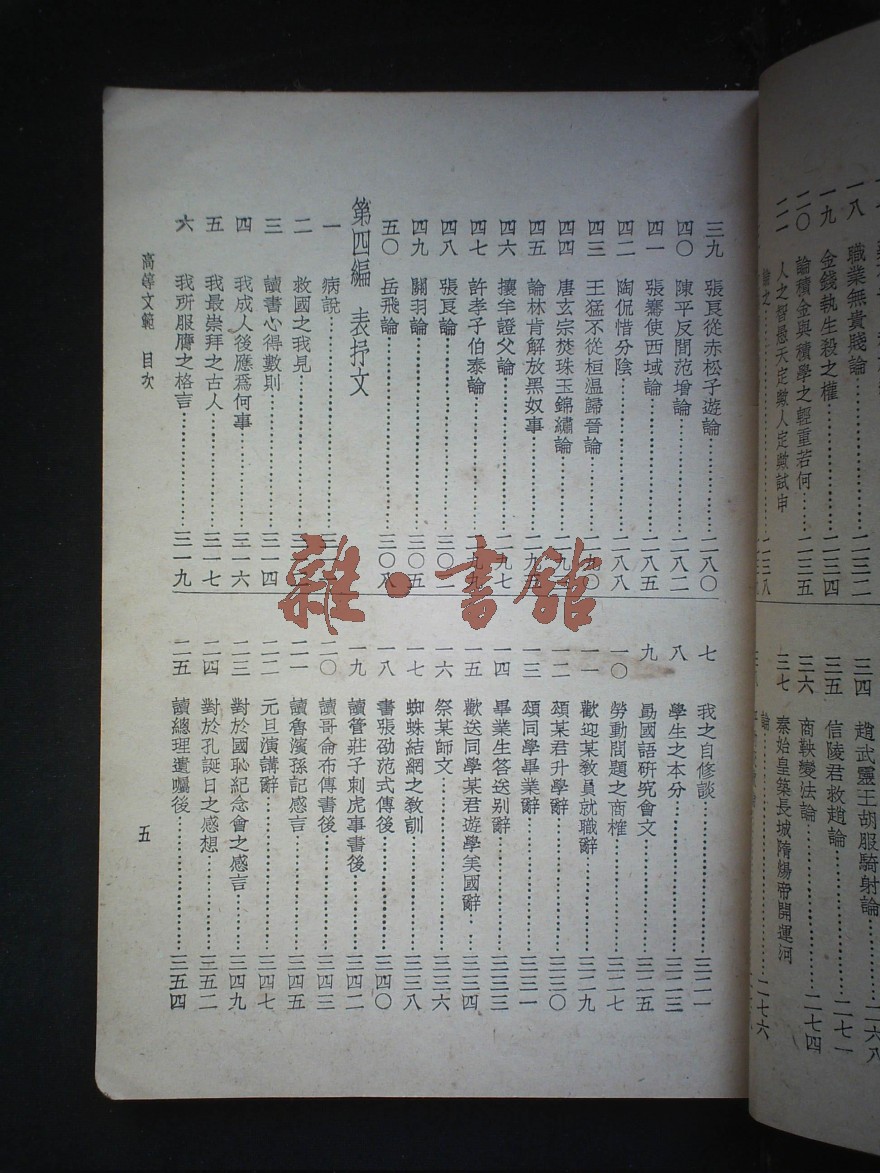 一八 職業無貴賤論……二三二
一九 金錢執生殺之權……二三四
二〇 論積金與積學之輕重若何……二三五
二一 人之智愚天定歟人定歟試申
論之……二三八
三四 趙武靈王胡服騎射論……二六八
三五 信陵君救趙論……二七一
三六 商鞅變法論……二七四
三七 秦始皇築長城隋煬帝開運河
論……二七六
三九 張良從赤松子遊論……二八〇
四〇 陳平反間范增論……二八二
四一 張騫使西域論……二八五
四二 陶侃惜分陰……二八八
四三 王猛不從桓溫歸晉論……二九〇
四四 唐玄宗焚珠玉錦繡論……二九
四五 論林肯解放黑奴事……二九五
四六 攘羊證父論……二九七
四七 許孝子伯泰論……二九九
四八 張良論……三〇二
四九 關羽論……三〇五
五〇 岳飛論……三〇八
第四編 表抒文
一 病說……三一
二 救國之我見……三一二
三 讀書心得數則……三一四
四 我成人後應爲何事……三一六
五 我最崇拜之古人……三一七
六 我所服膺之格言……三一九
七 我之自修談……三二一
八 學生之本分……三二三
九 勗國語研究會文……三二五
一〇 勞動問題之商榷……三二七
一一 歡迎某教員就職辭……三二九
一二 頌某君升學辭……三三〇
一三 頌同學畢業辭……三三一
一四 畢業生答送別辭……三三三
一五 歡送同學某君遊學美國辭……三三四
一六 祭某師文……三三六
一七 蜘蛛結網之教訓……三三八
一八 書張劭范式傳後……三四〇
一九 讀管莊子刺虎事書後……三四二
二〇 讀哥侖布傳書後……三四三
二一 讀魯濱孫記感言……三四五
二二 元旦演講辭……三四七
二三 對於國恥紀念會之感言……三四九
二四 對於孔誕日之感想……三五二
二五 讀總理遺囑後……三五四
高等文範 目次
五
雜·書館